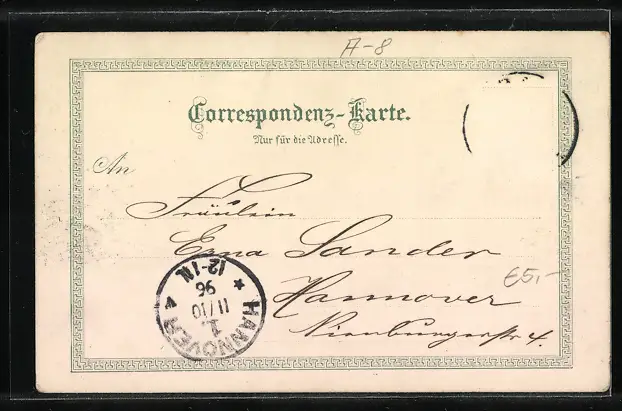 A-8
Correspondenz-Karte.
Nur für die Adresse.
An
Fräulein
Erna Sander
Hannover
Nienburgerstr. 4.
€5,-
HANNOVER
1.
11/10
96
12-1N.